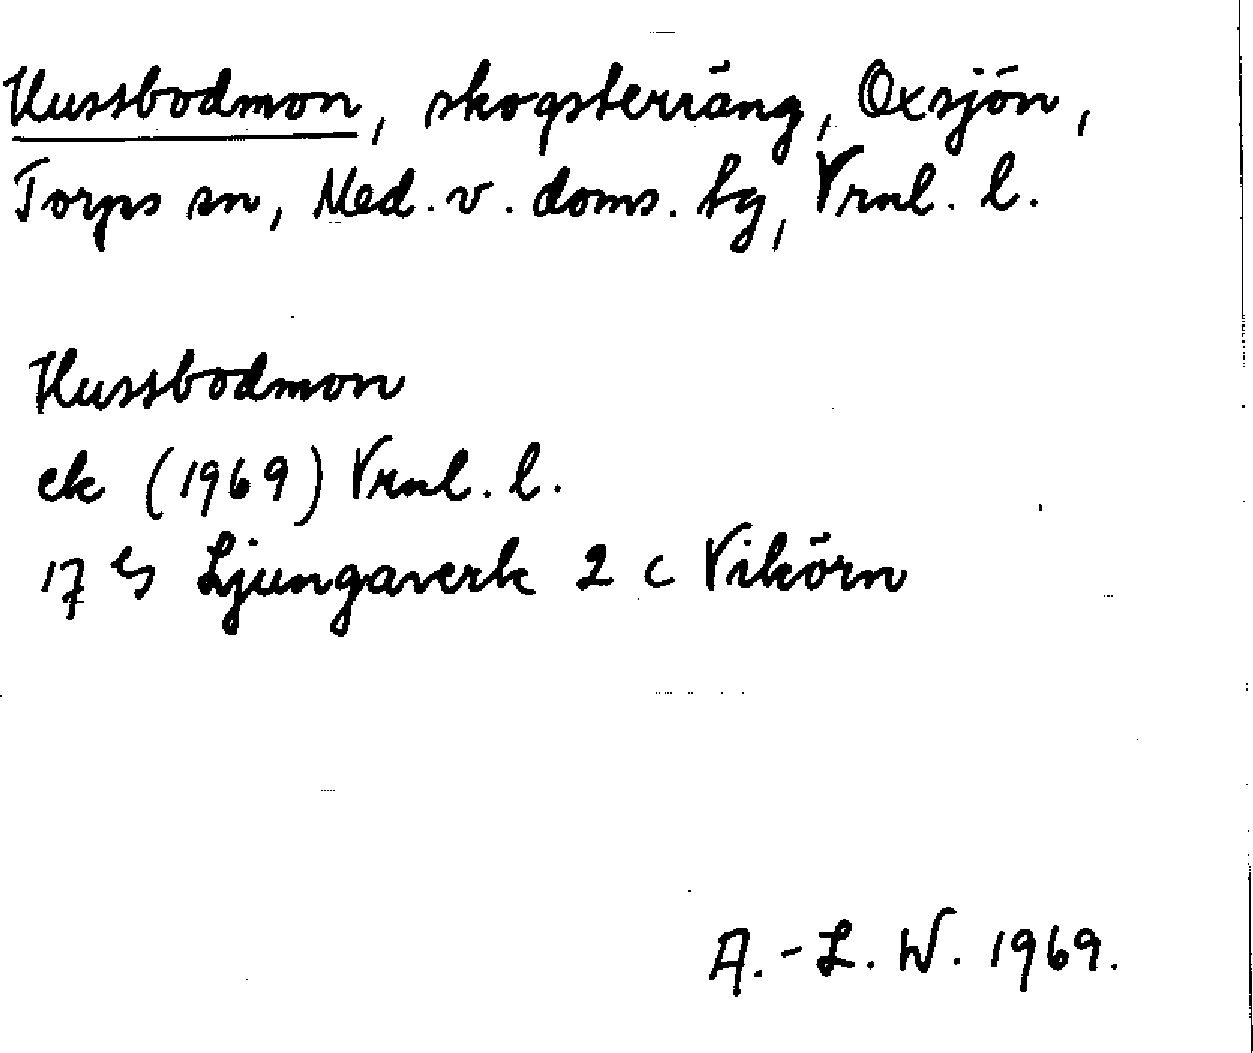 Hussbodmon, skogsterräng, Oxsjön,
Torps sn, Med. v. doms. tg, Vrnl. l.
Hussbodmon
ek (1969) Vrnl. l.
17 G Ljungaverk 2 c Vikörn
A.-L. W. 1969.